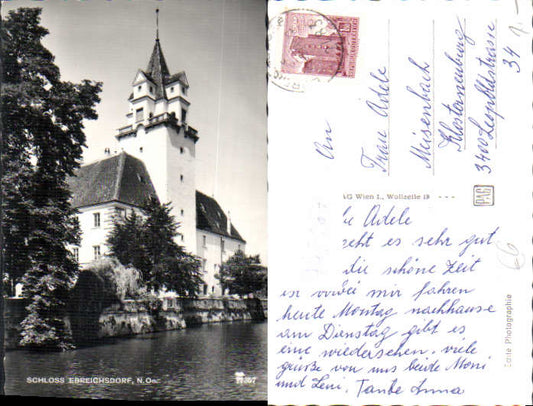 SCHLOSS EBREICHSDORF, N.Oe.
An
Frau Adele
Meisenbach
Klosterneuburg
3400 Leopoldstrasse
34
AG Wien I., Wollzeile 19
PAG
Echte Photographie
Adele
geht es sehr gut
die schöne Zeit
ist vorbei mir fahren
heute Montag nachhause
am Dienstag gibt es
eine wiedersehen, viele
grüsse von uns beide Moni
und Leni, Tante Anna